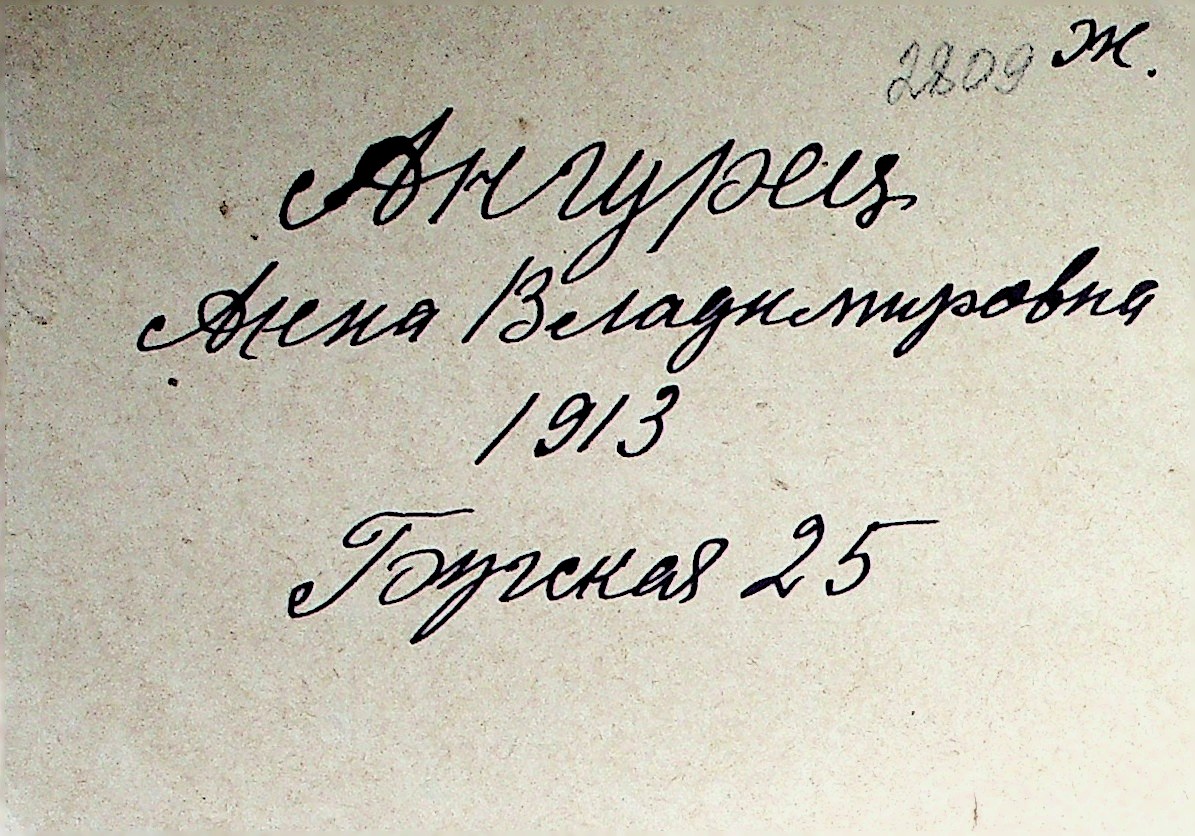 2809 Ж.
Ангурец
Анна Владимировна
1913
Бугская 25